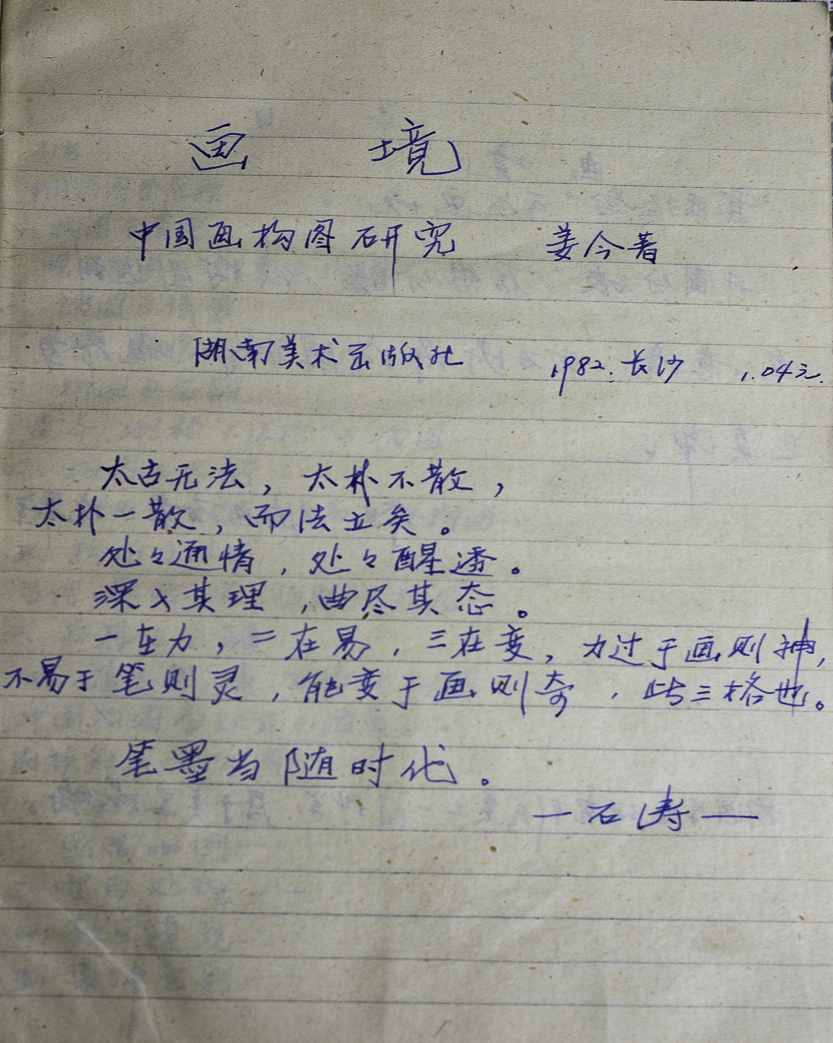 画 境
中国画构图研究 姜今著
湖南美术出版社 1982.长沙 1.04元.
太古无法，太朴不散，
太朴一散，而法立矣。
处々通情，处々醒透。
深入其理，曲尽其态。
一在力，二在易，三在变，力过于画则神，
不易于笔则灵，能变于画则奇，此三格也。
笔墨当随时代。
—石涛—